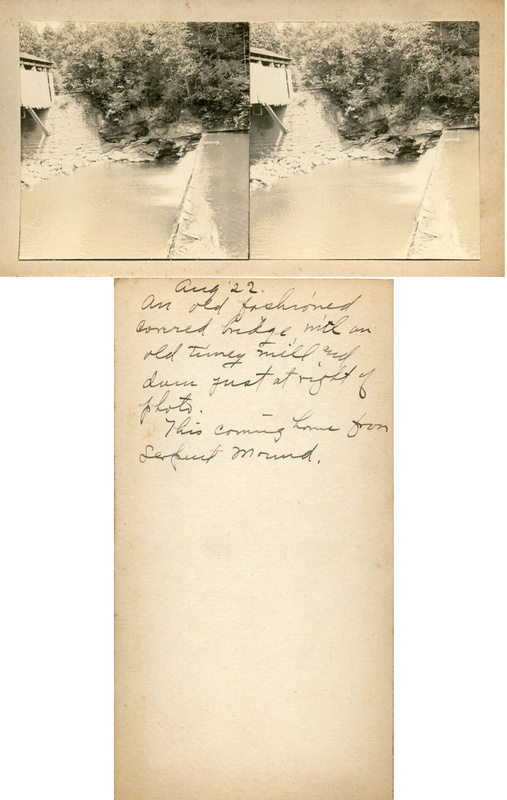 Aug '22.
An old fashioned
covered bridge with an
old timey mill and
dam just at right of
photo.
This coming home from
Serpent Mound.